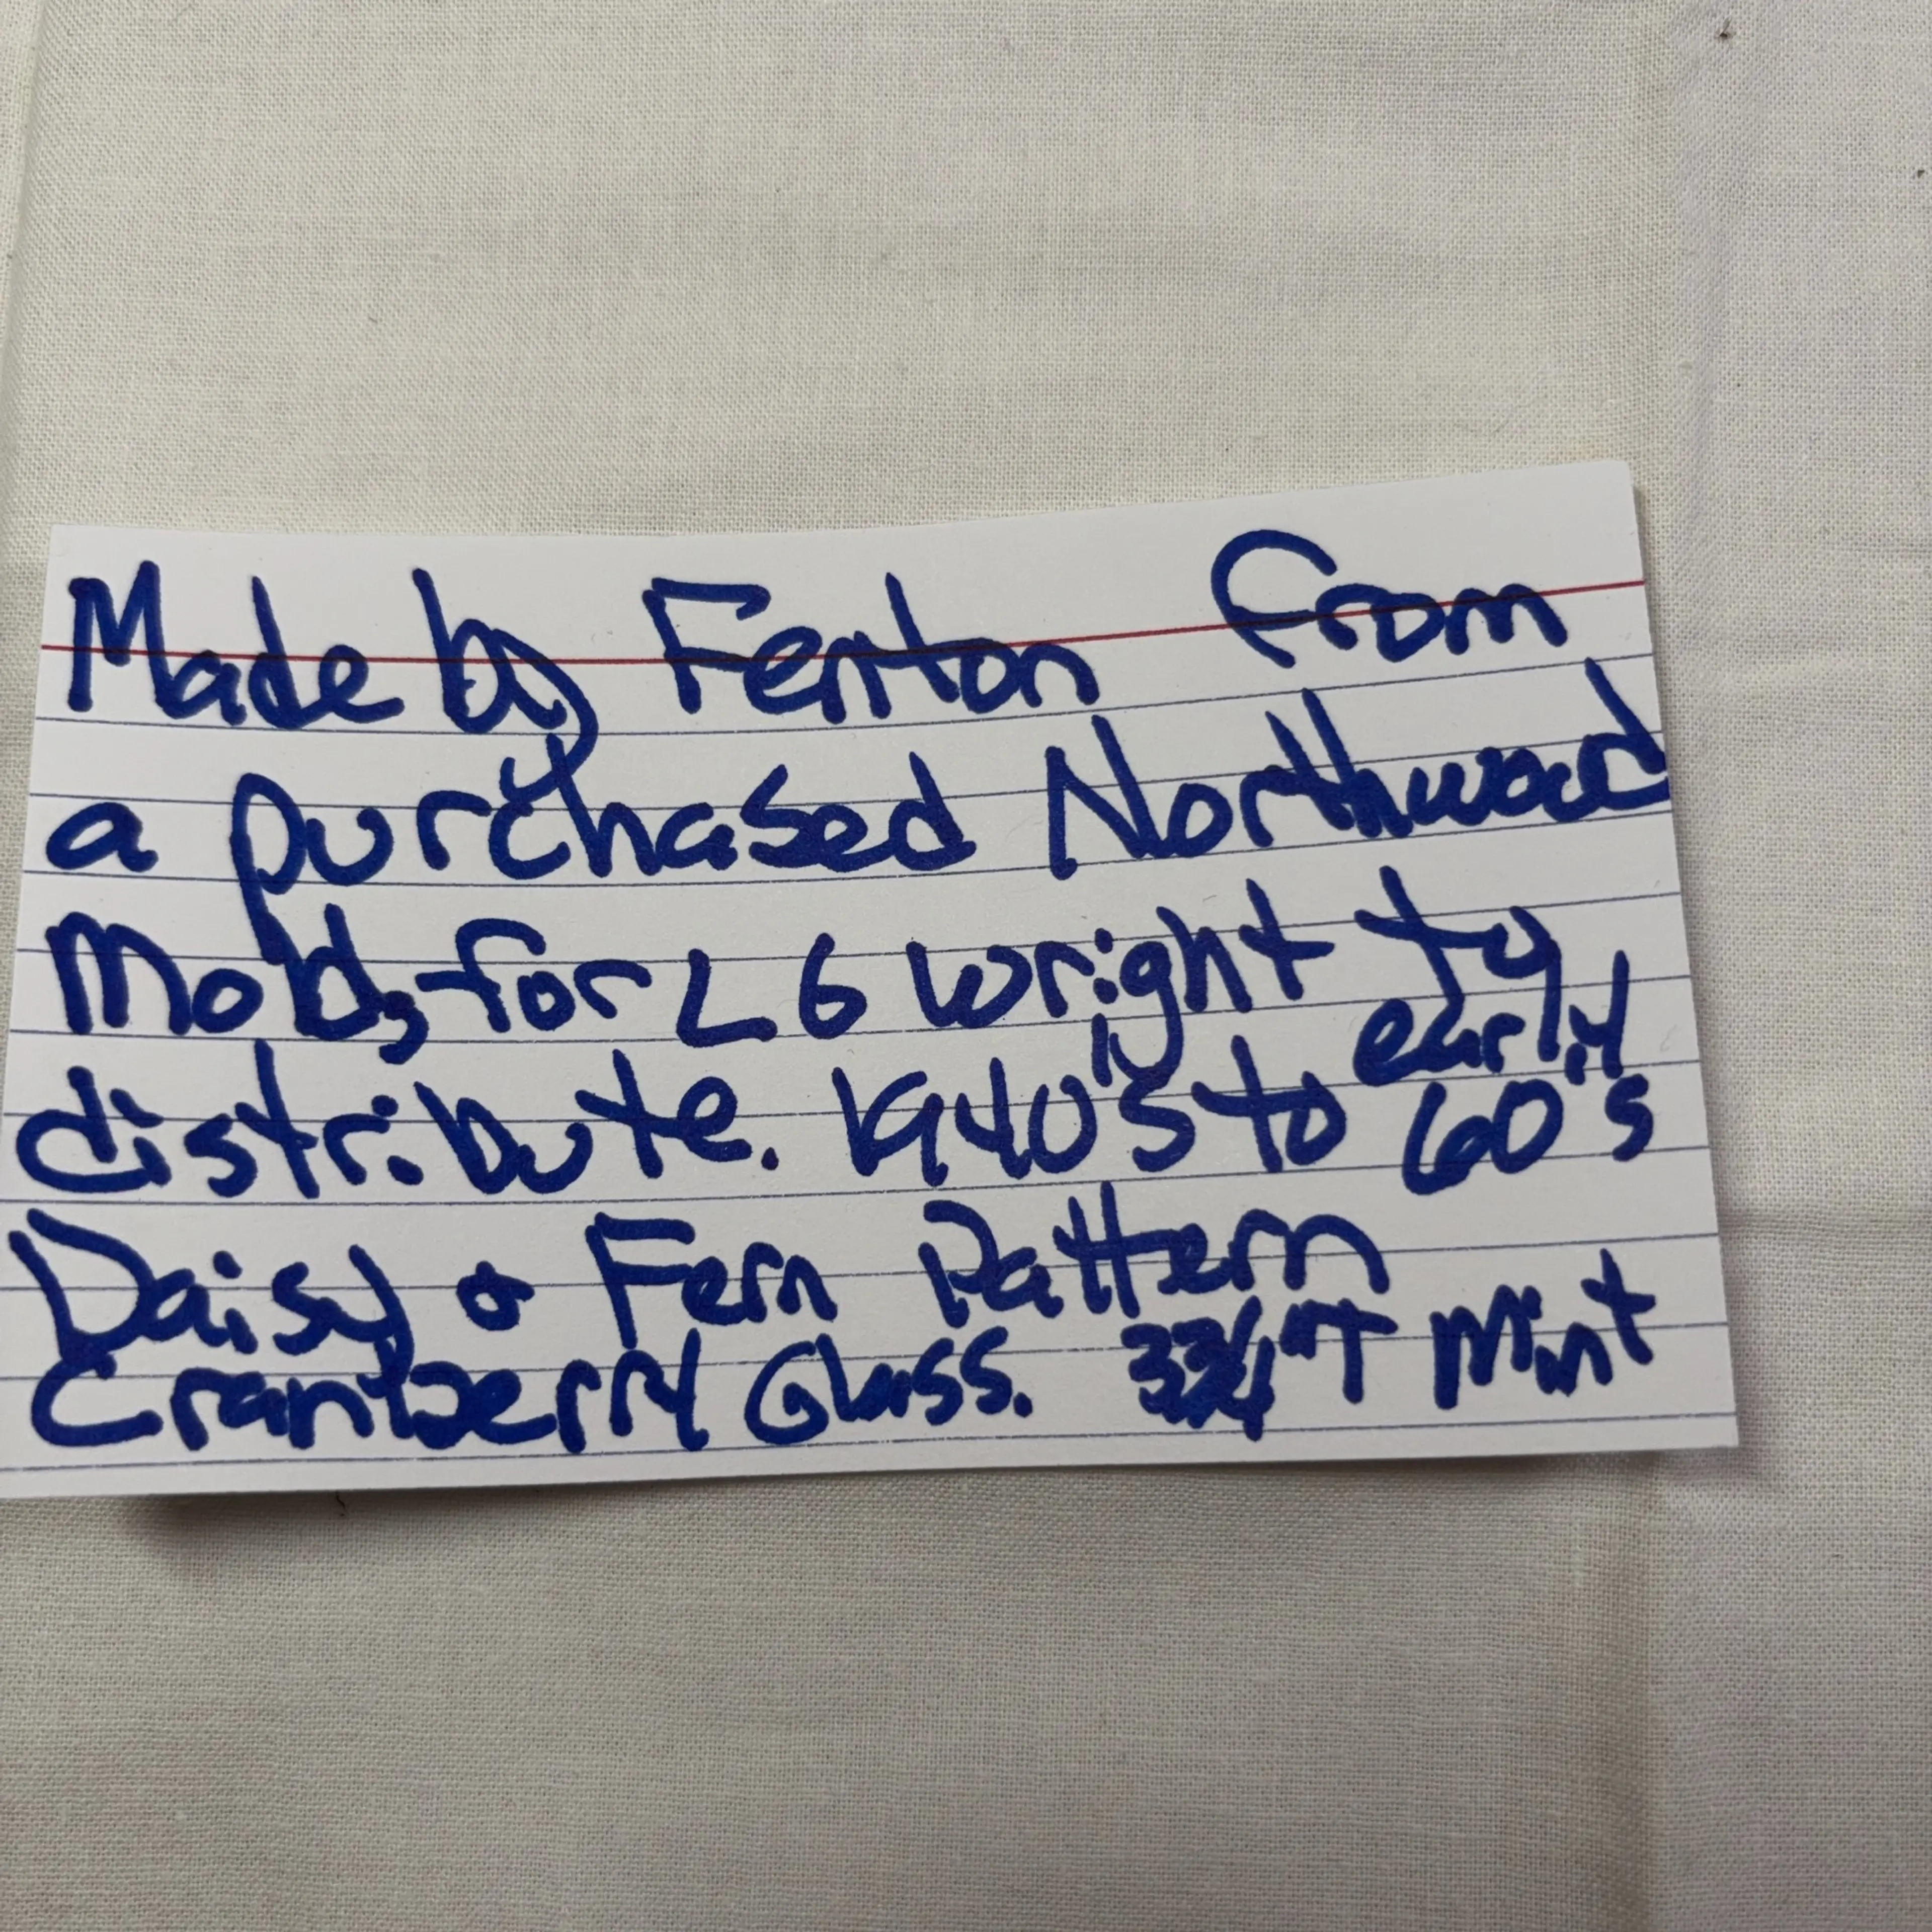 Made by Fenton from
a purchased Northwood
Mold, for L G Wright to
distribute. 1940's to early 60's
Daisy & Fern Pattern
Cranberry Glass. 3 3/4" T Mint